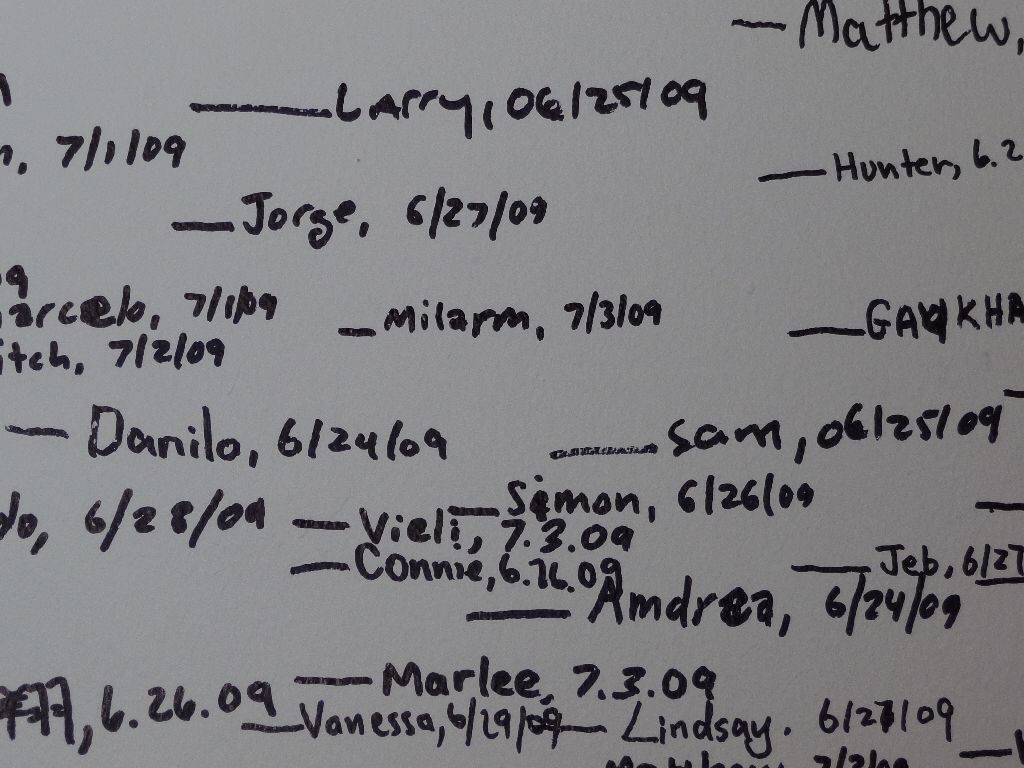 Matthew,
Larry, 06/25/09
7/1/09
Hunter, 6.2
Jorge, 6/27/09
arcelo, 7/1/09
Milarm, 7/3/09
GAVKHA
itch, 7/2/09
Danilo, 6/24/09
Sam, 06/25/09
Simon, 6/26/09
do, 6/28/09
Vieli, 7.3.09
Connie, 6.26.09
Jeb, 6/27
Amdrea, 6/24/09
Marlee, 7.3.09
6.26.09
Vanessa, 6/29/09
Lindsay. 6/27/09